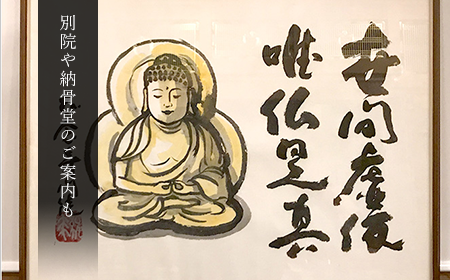 世間虚仮
唯仏是真
別院や納骨堂のご案内も